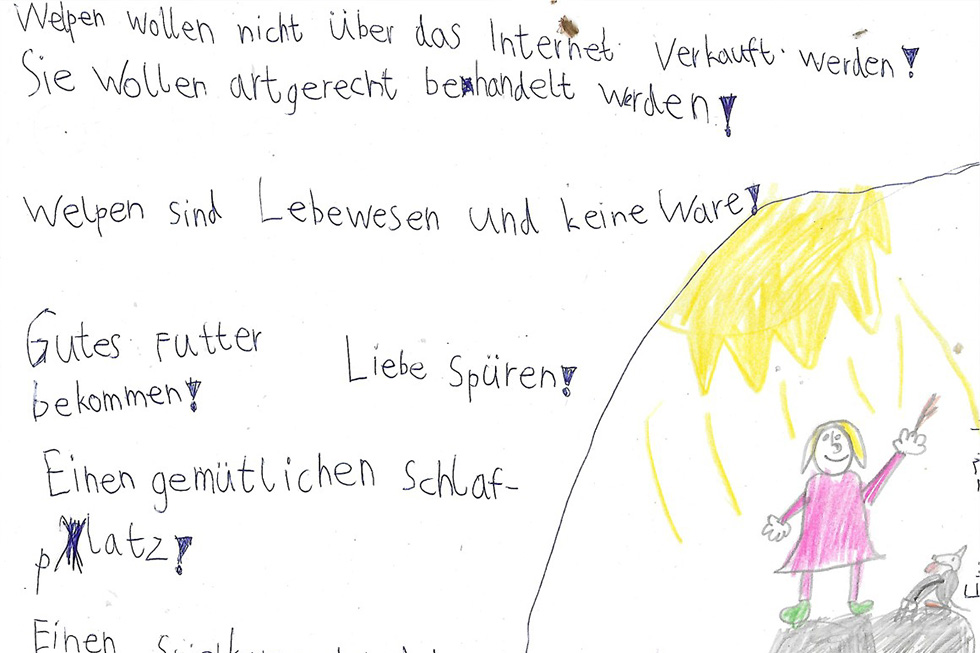 Welpen wollen nicht Über das Internet Verkauft werden!
Sie Wollen artgerecht behandelt werden!
Welpen sind Lebewesen und keine Ware!
Gutes Futter
bekommen!
Liebe Spüren!
Einen gemütlichen Schlaf-
platz!
Einen